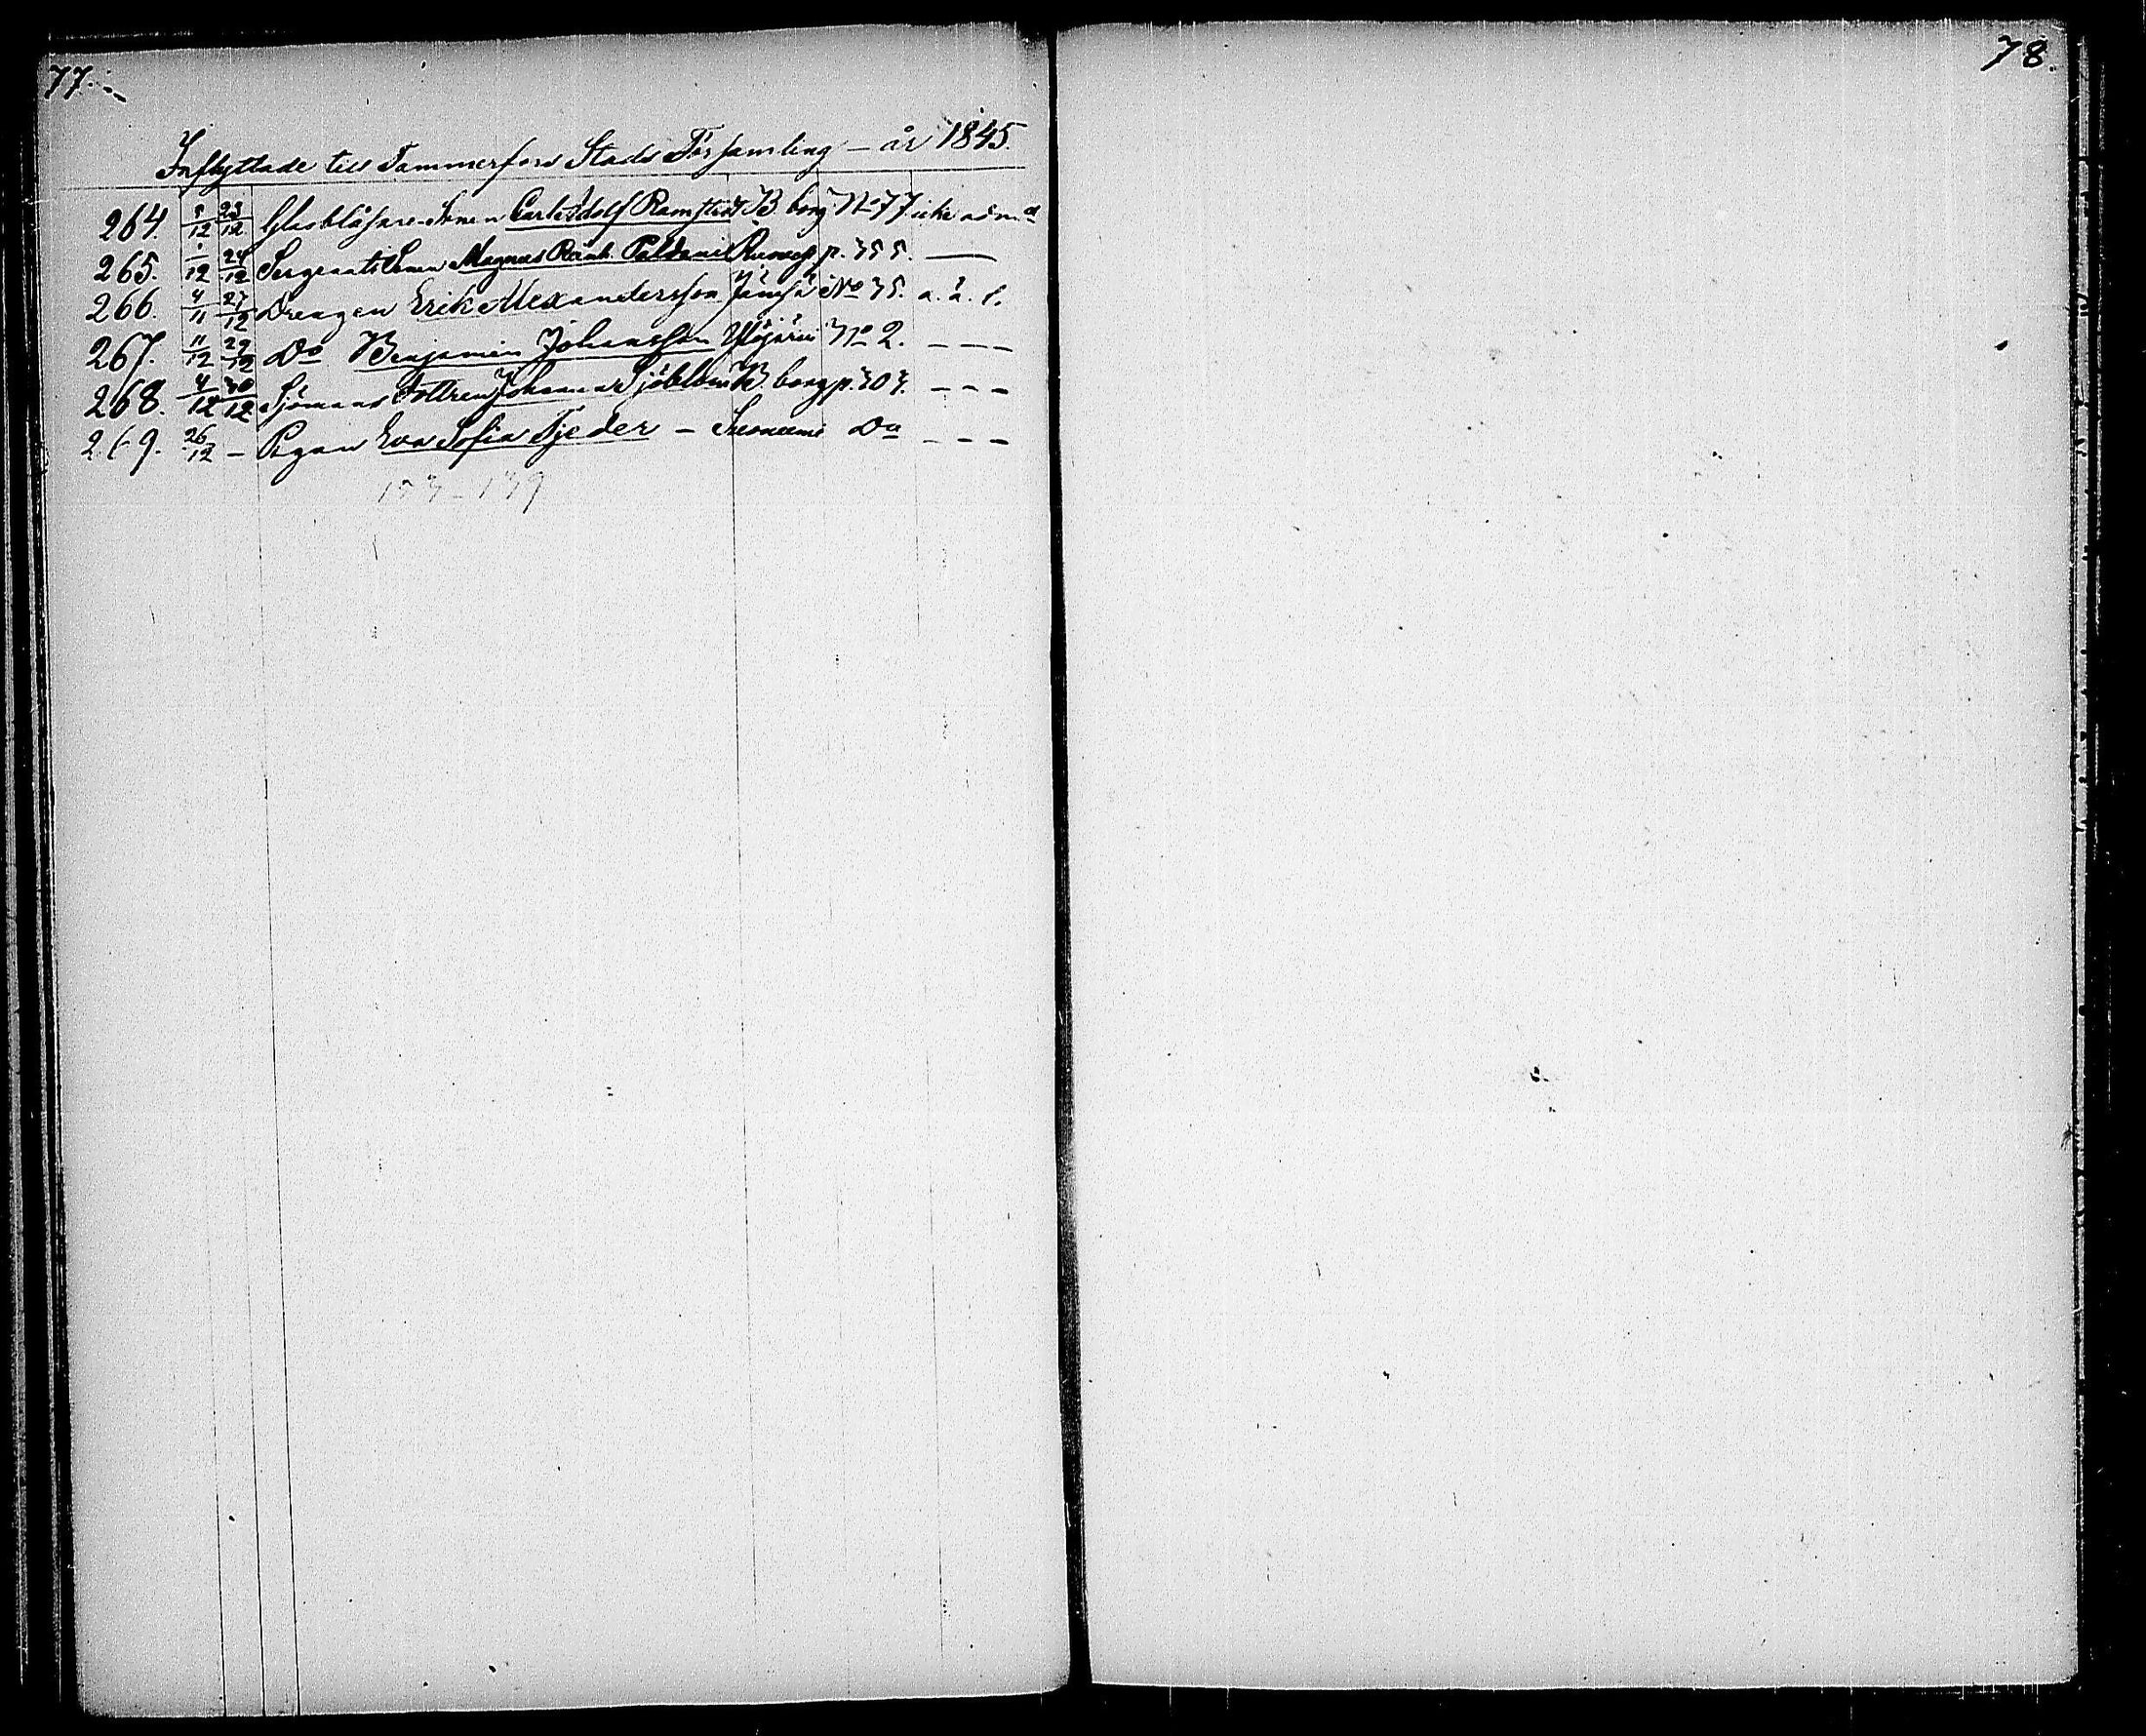 77.
78.
Inflyttade till Tammerfors Stads Församling – år 1845.
264. 5/12 23/12 Glasblåsare Sonen Carl Adolf Ramstedt B. borg No 77 icke adm.
265. 1/12 24/12 Sergeants Sonen Magnus Reinh. Paldani p. 355. —
266. 4/11 27/12 Drengen Erik Alexandersson Jämsä No 35. a. ä. l.
267. 11/12 29/12 Do Benjamin Johansson Ylöjärvi No 2. – – –
268. 4/12 30/12 Sjömans Dottren Johanna Sjöblom B. borg p. 303. – – –
269. 26/12 – Pigan Eva Sofia Tjeder – Do – – –